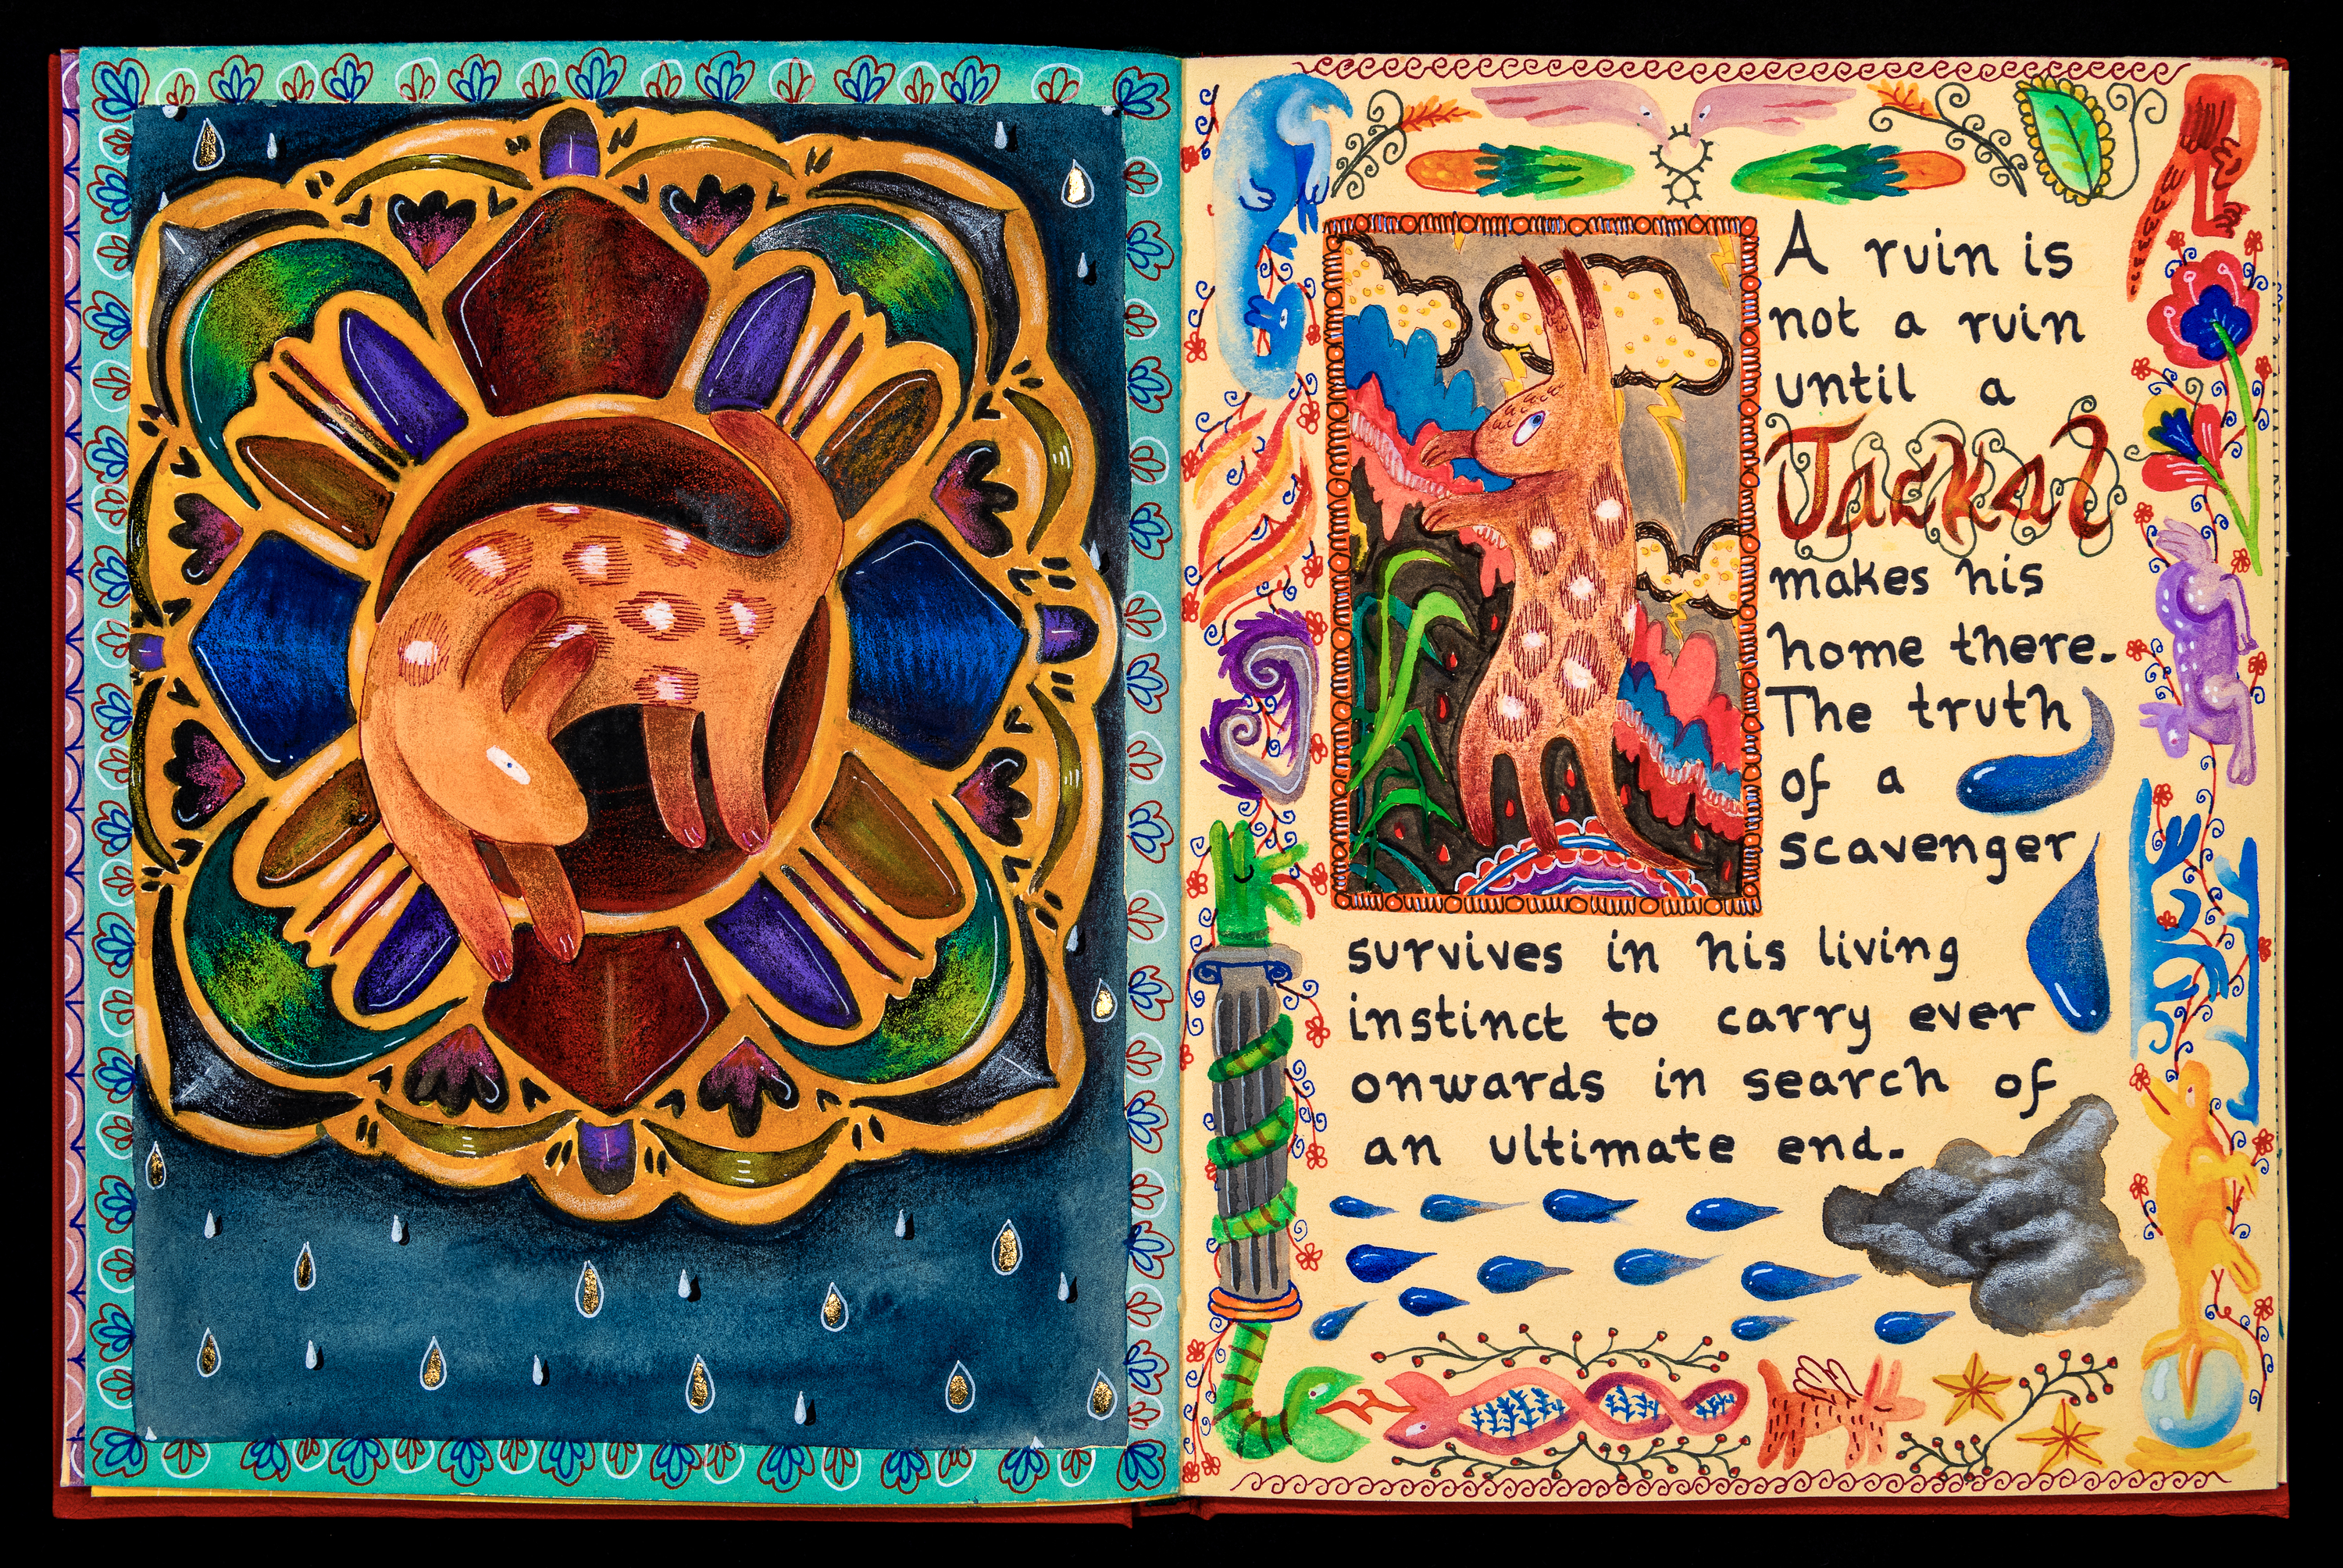 A ruin is
not a ruin
until a
Jackal
makes his
home there.
The truth
of a
scavenger
survives in his living
instinct to carry ever
onwards in search of
an ultimate end.